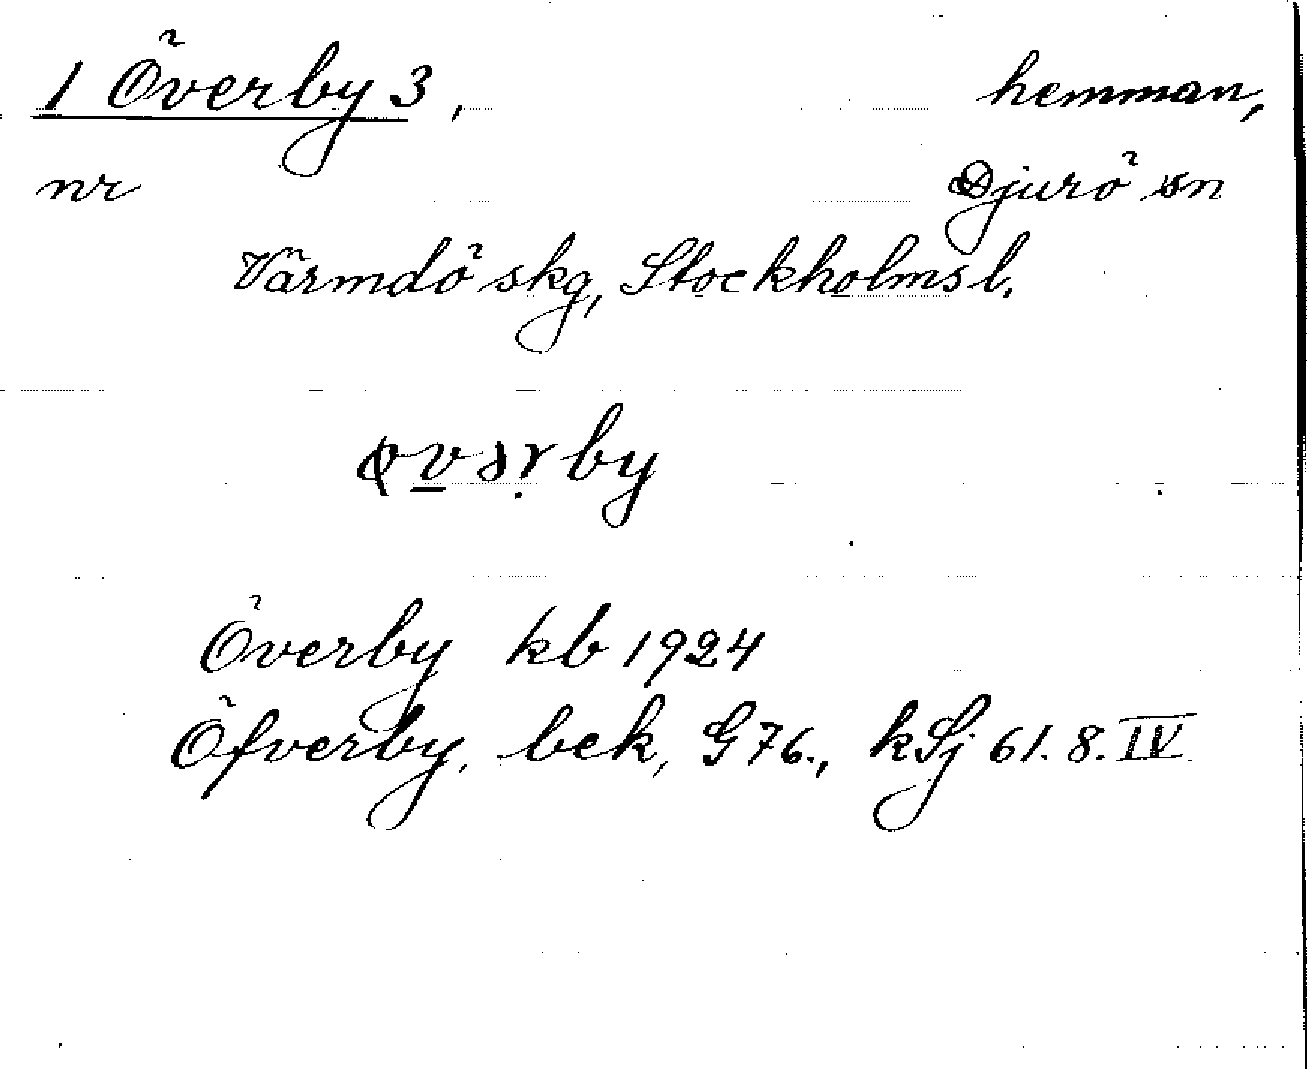 1 Överby 3, hemman,
nr Djurö sn
Värmdö skg, Stockholms l.
by
Överby kb 1924
Öfverby, bek, G 76., kSj 61.8.IV